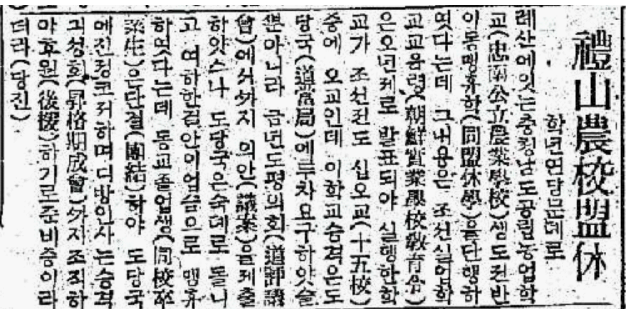 禮山農校盟休
학년연당문뎨로
례산에잇는충청남도공립농업학
교(忠南公立農業學校)생도전반
이동맹휴학(同盟休學)을단행하
엿다는데 그내용은 조선실업학
교교육령(朝鮮實業學校敎育令)
은오년계로 발표되야 실행한학
교가 조선전도 십오교(十五校)
중에 오교인데 이학교승격은도
당국(道當局)에루차요구하얏슬
뿐아니라 금년도평의회(道評議
會)에서까지 의안(議案)을뎨출
하얏스나 도당국은숙뎨로 돌니
고 여하한립안이업슴으로 맹휴
하엿다는데 동교졸업생(同校卒
業生)은단결(團結)하야 도당국
에진정코저하며디방인사는승격
긔성회(昇格期成會)까지조직하
야후원(後援)하기로준비중이라
더라(당진)